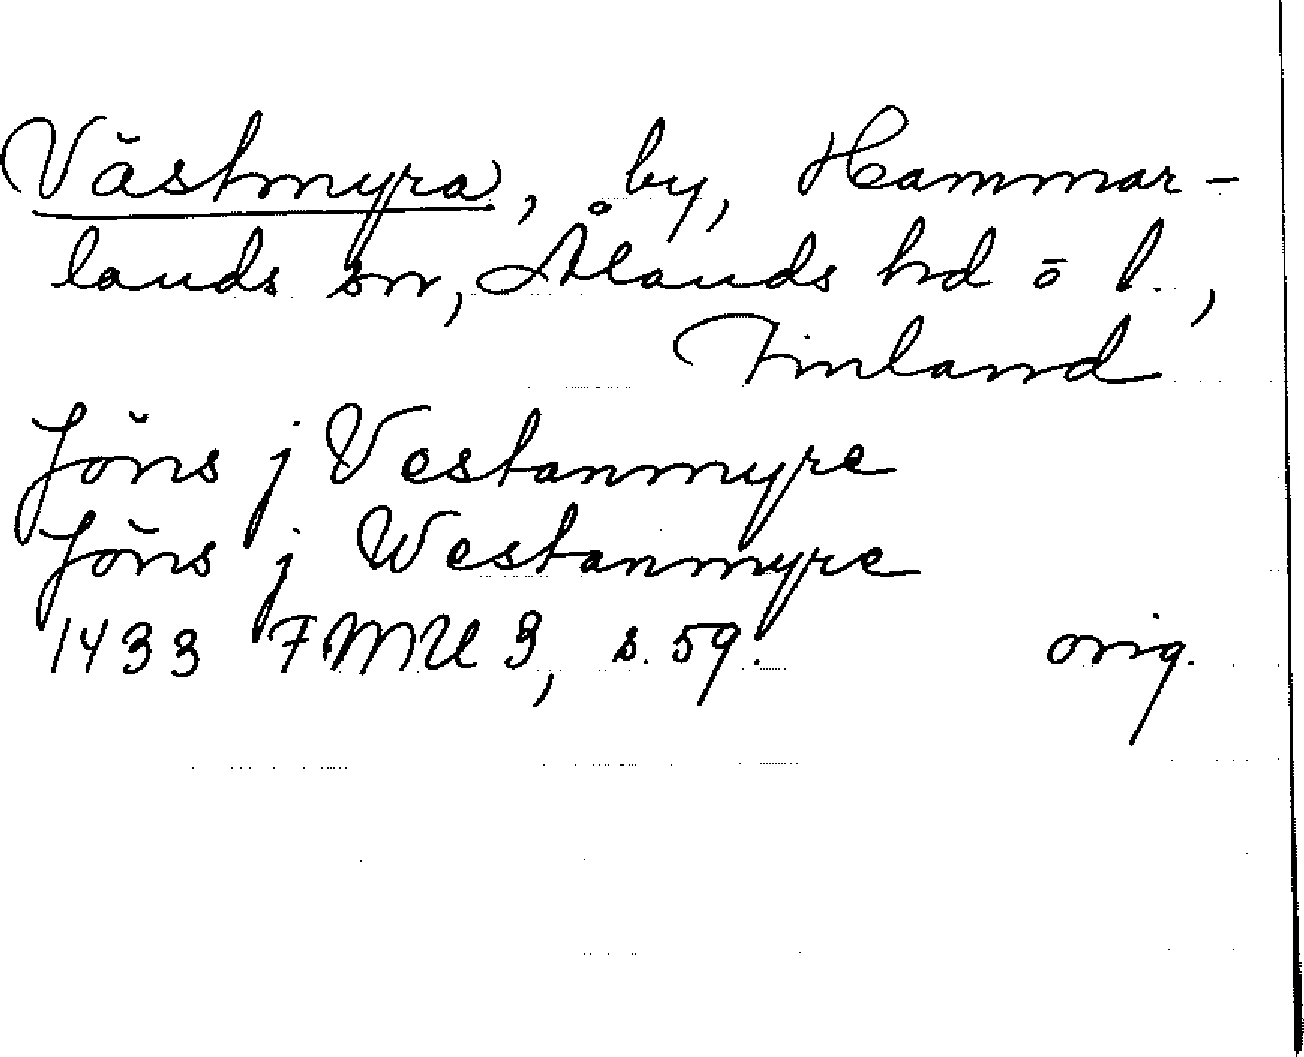 Västmyra, by, Hammar-
lands sn, Ålands hd o l.,
Finland
Jöns j Vestanmyre
Jöns j Westanmyre
1433 FMU 3, s. 59. orig.